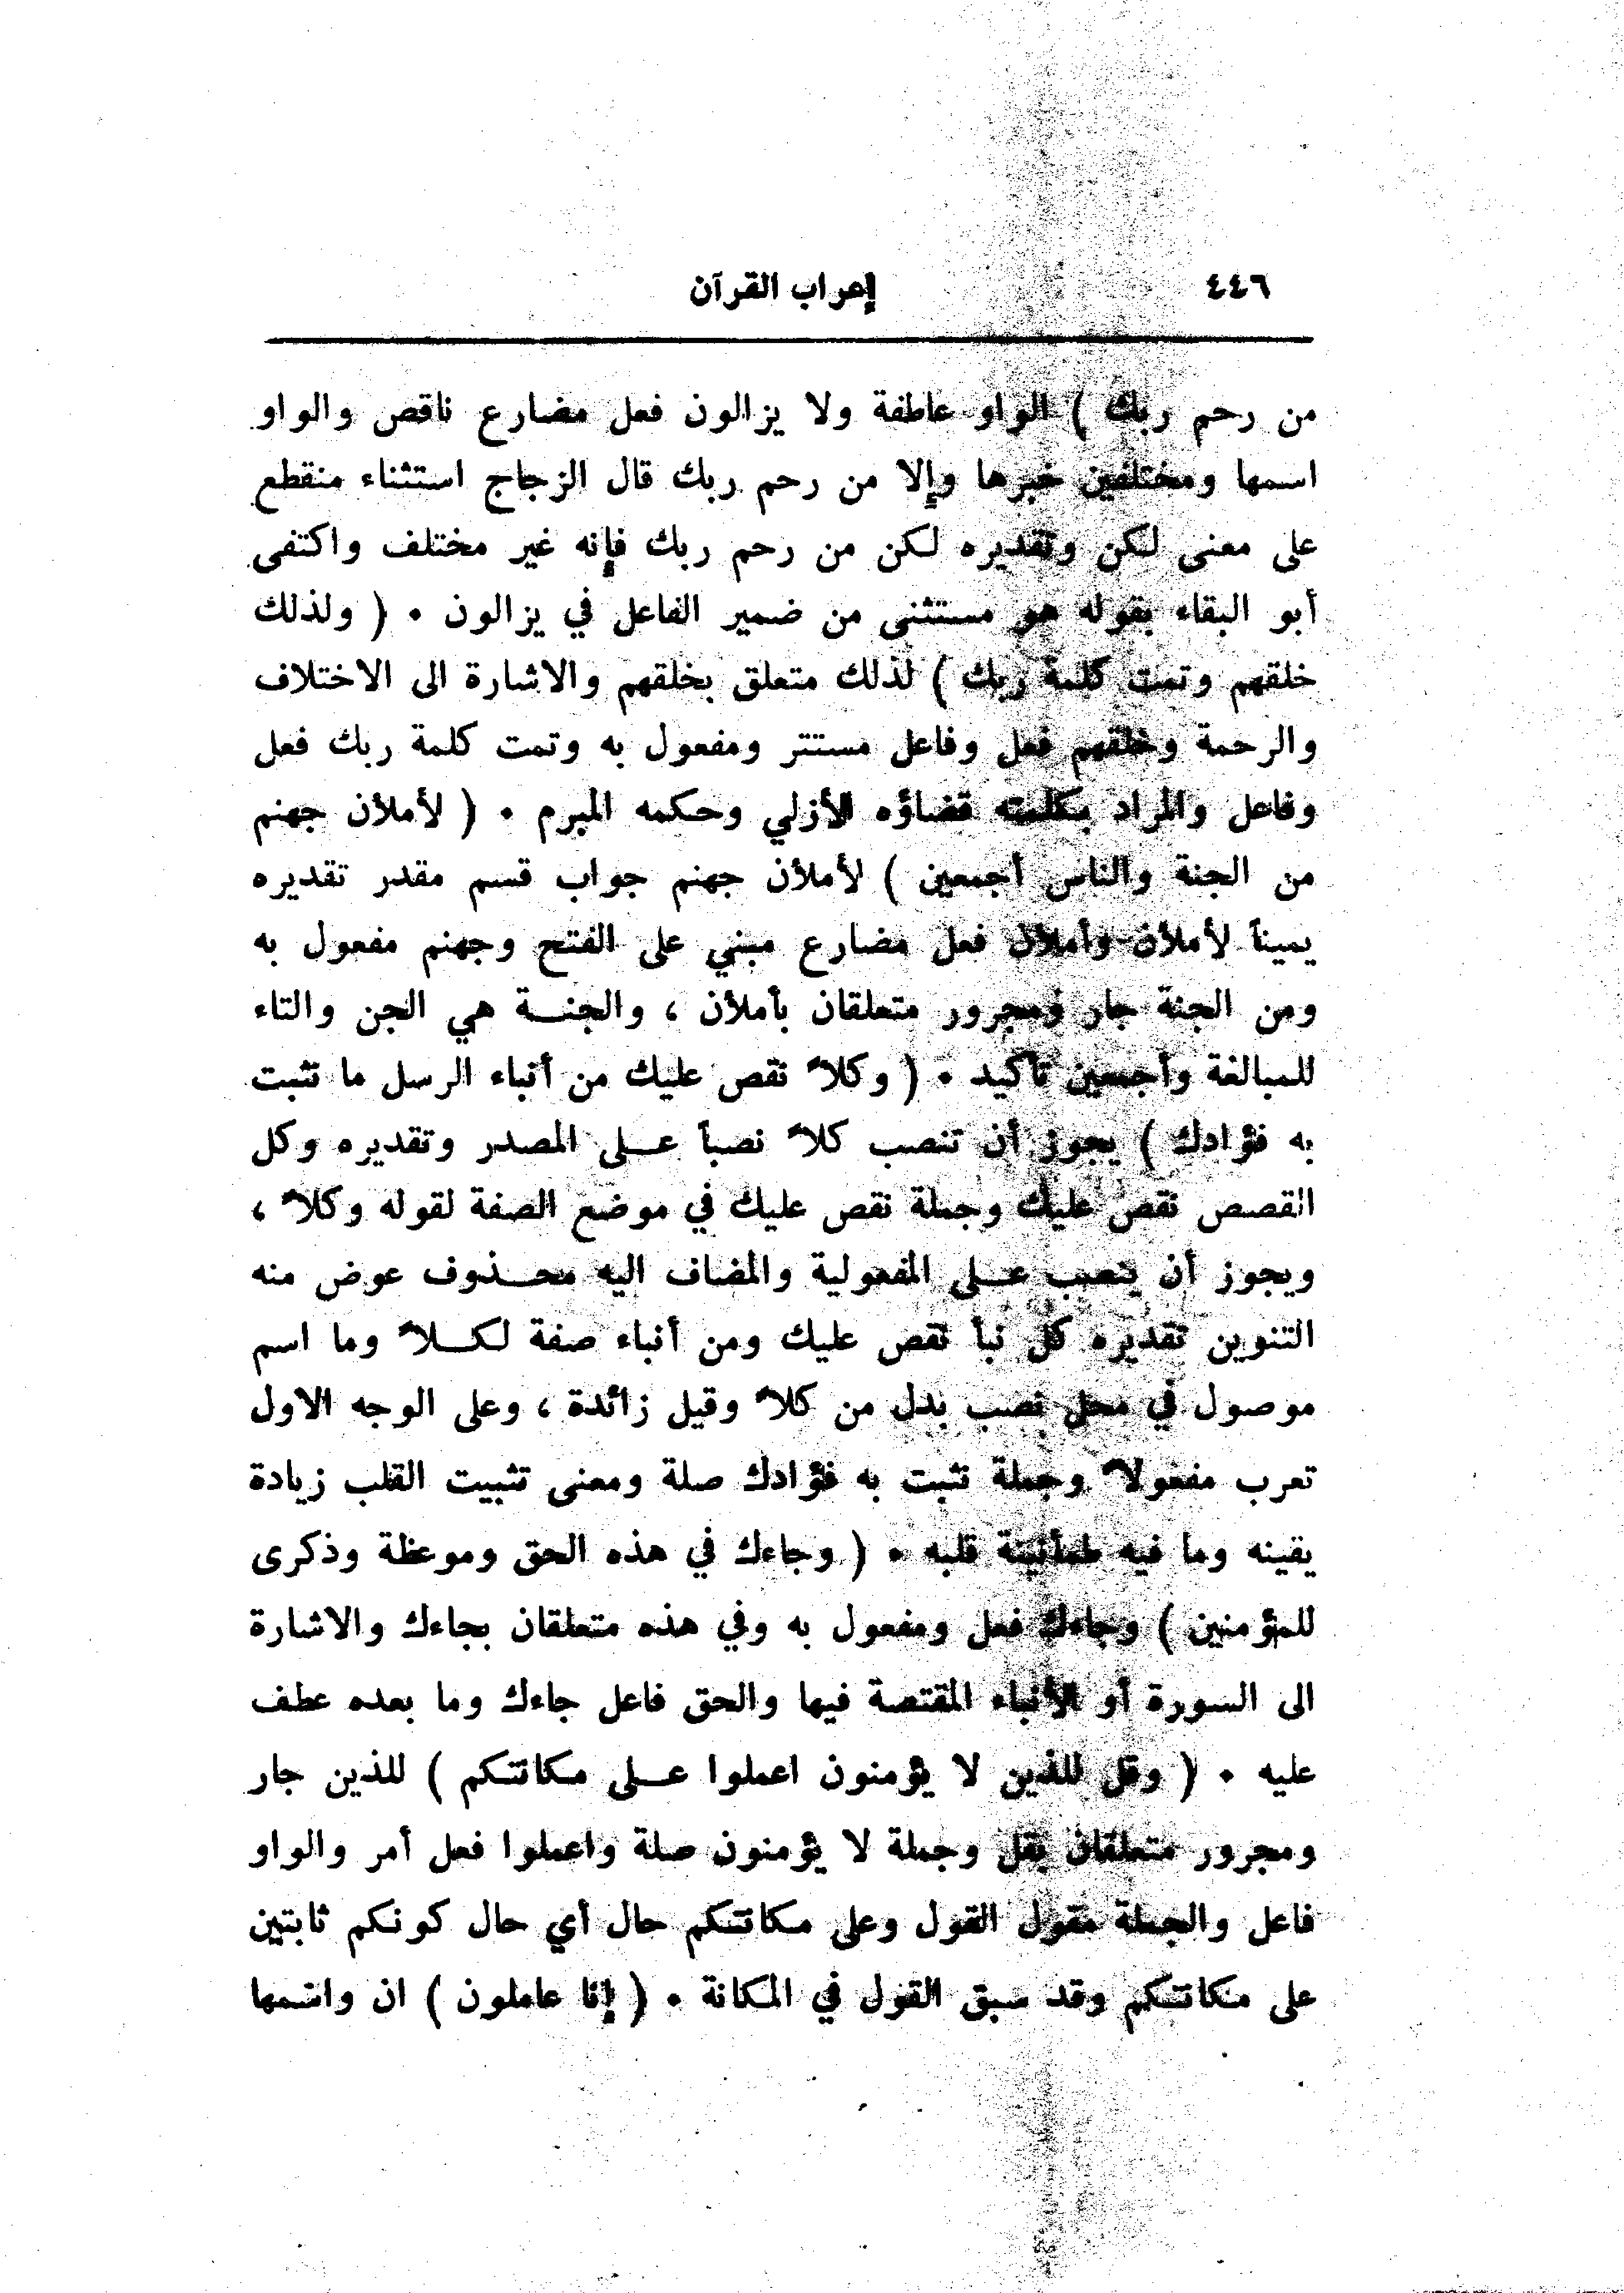 ٤٤٦ إعراب القرآن
من رحم ربك ) الواو عاطفة ولا يزالون فعل مضارع ناقص والواو
اسمها ومختلفين خبرها وإلا من رحم ربك قال الزجاج استثناء منقطع
على معنى لكن وتقديره لكن من رحم ربك فإنه غير مختلف واكتفى
أبو البقاء بقوله هو مستثنى من ضمير الفاعل في يزالون ٠ ( ولذلك
خلقهم وتمت كلمة ربك ) لذلك متعلق بخلقهم والاشارة الى الاختلاف
والرحمة وخلقهم فعل وفاعل مستتر ومفعول به وتمت كلمة ربك فعل
وفاعل والمراد بكلمته قضاؤه الأزلي وحكمه المبرم ٠ ( لأملأن جهنم
من الجنة والناس أجمعين ) لأملأن جهنم جواب قسم مقدر تقديره
يميناً لأملأن وأملأن فعل مضارع مبني على الفتح وجهنم مفعول به
ومن الجنة جار ومجرور متعلقان بأملأن ، والجنـــة هي الجن والتاء
للمبالغة وأجمعين تأكيد ٠ ( وكلاً نقص عليك من أنباء الرسل ما نثبت
به فؤادك ) يجوز أن تنصب كلاً نصباً عـــلى المصدر وتقديره وكل
القصص نقص عليك وجملة نقص عليك في موضع الصفة لقوله وكلاً ،
ويجوز أن ينصب عـــلى المفعولية والمضاف اليه محـــذوف عوض منه
التنوين تقديره كل نبأ نقص عليك ومن أنباء صفة لكـــلاً وما اسم
موصول في محل نصب بدل من كلاً وقيل زائدة ، وعلى الوجه الاول
تعرب مفعولاً وجملة نثبت به فؤادك صلة ومعنى تثبيت القلب زيادة
يقينه وما فيه طمأنينة قلبه ٠ ( وجاءك في هذه الحق وموعظة وذكرى
للمؤمنين ) وجاءك فعل ومفعول به وفي هذه متعلقان بجاءك والاشارة
الى السورة أو الأنباء المقتصة فيها والحق فاعل جاءك وما بعده عطف
عليه ٠ ( وقل للذين لا يؤمنون اعملوا عـــلى مكانتكم ) للذين جار
ومجرور متعلقان بقل وجملة لا يؤمنون صلة واعملوا فعل أمر والواو
فاعل والجملة مقول القول وعلى مكانتكم حال أي حال كونكم ثابتين
على مكانتكم وقد سبق القول في المكانة ٠ ( إنا عاملون ) ان واسمها